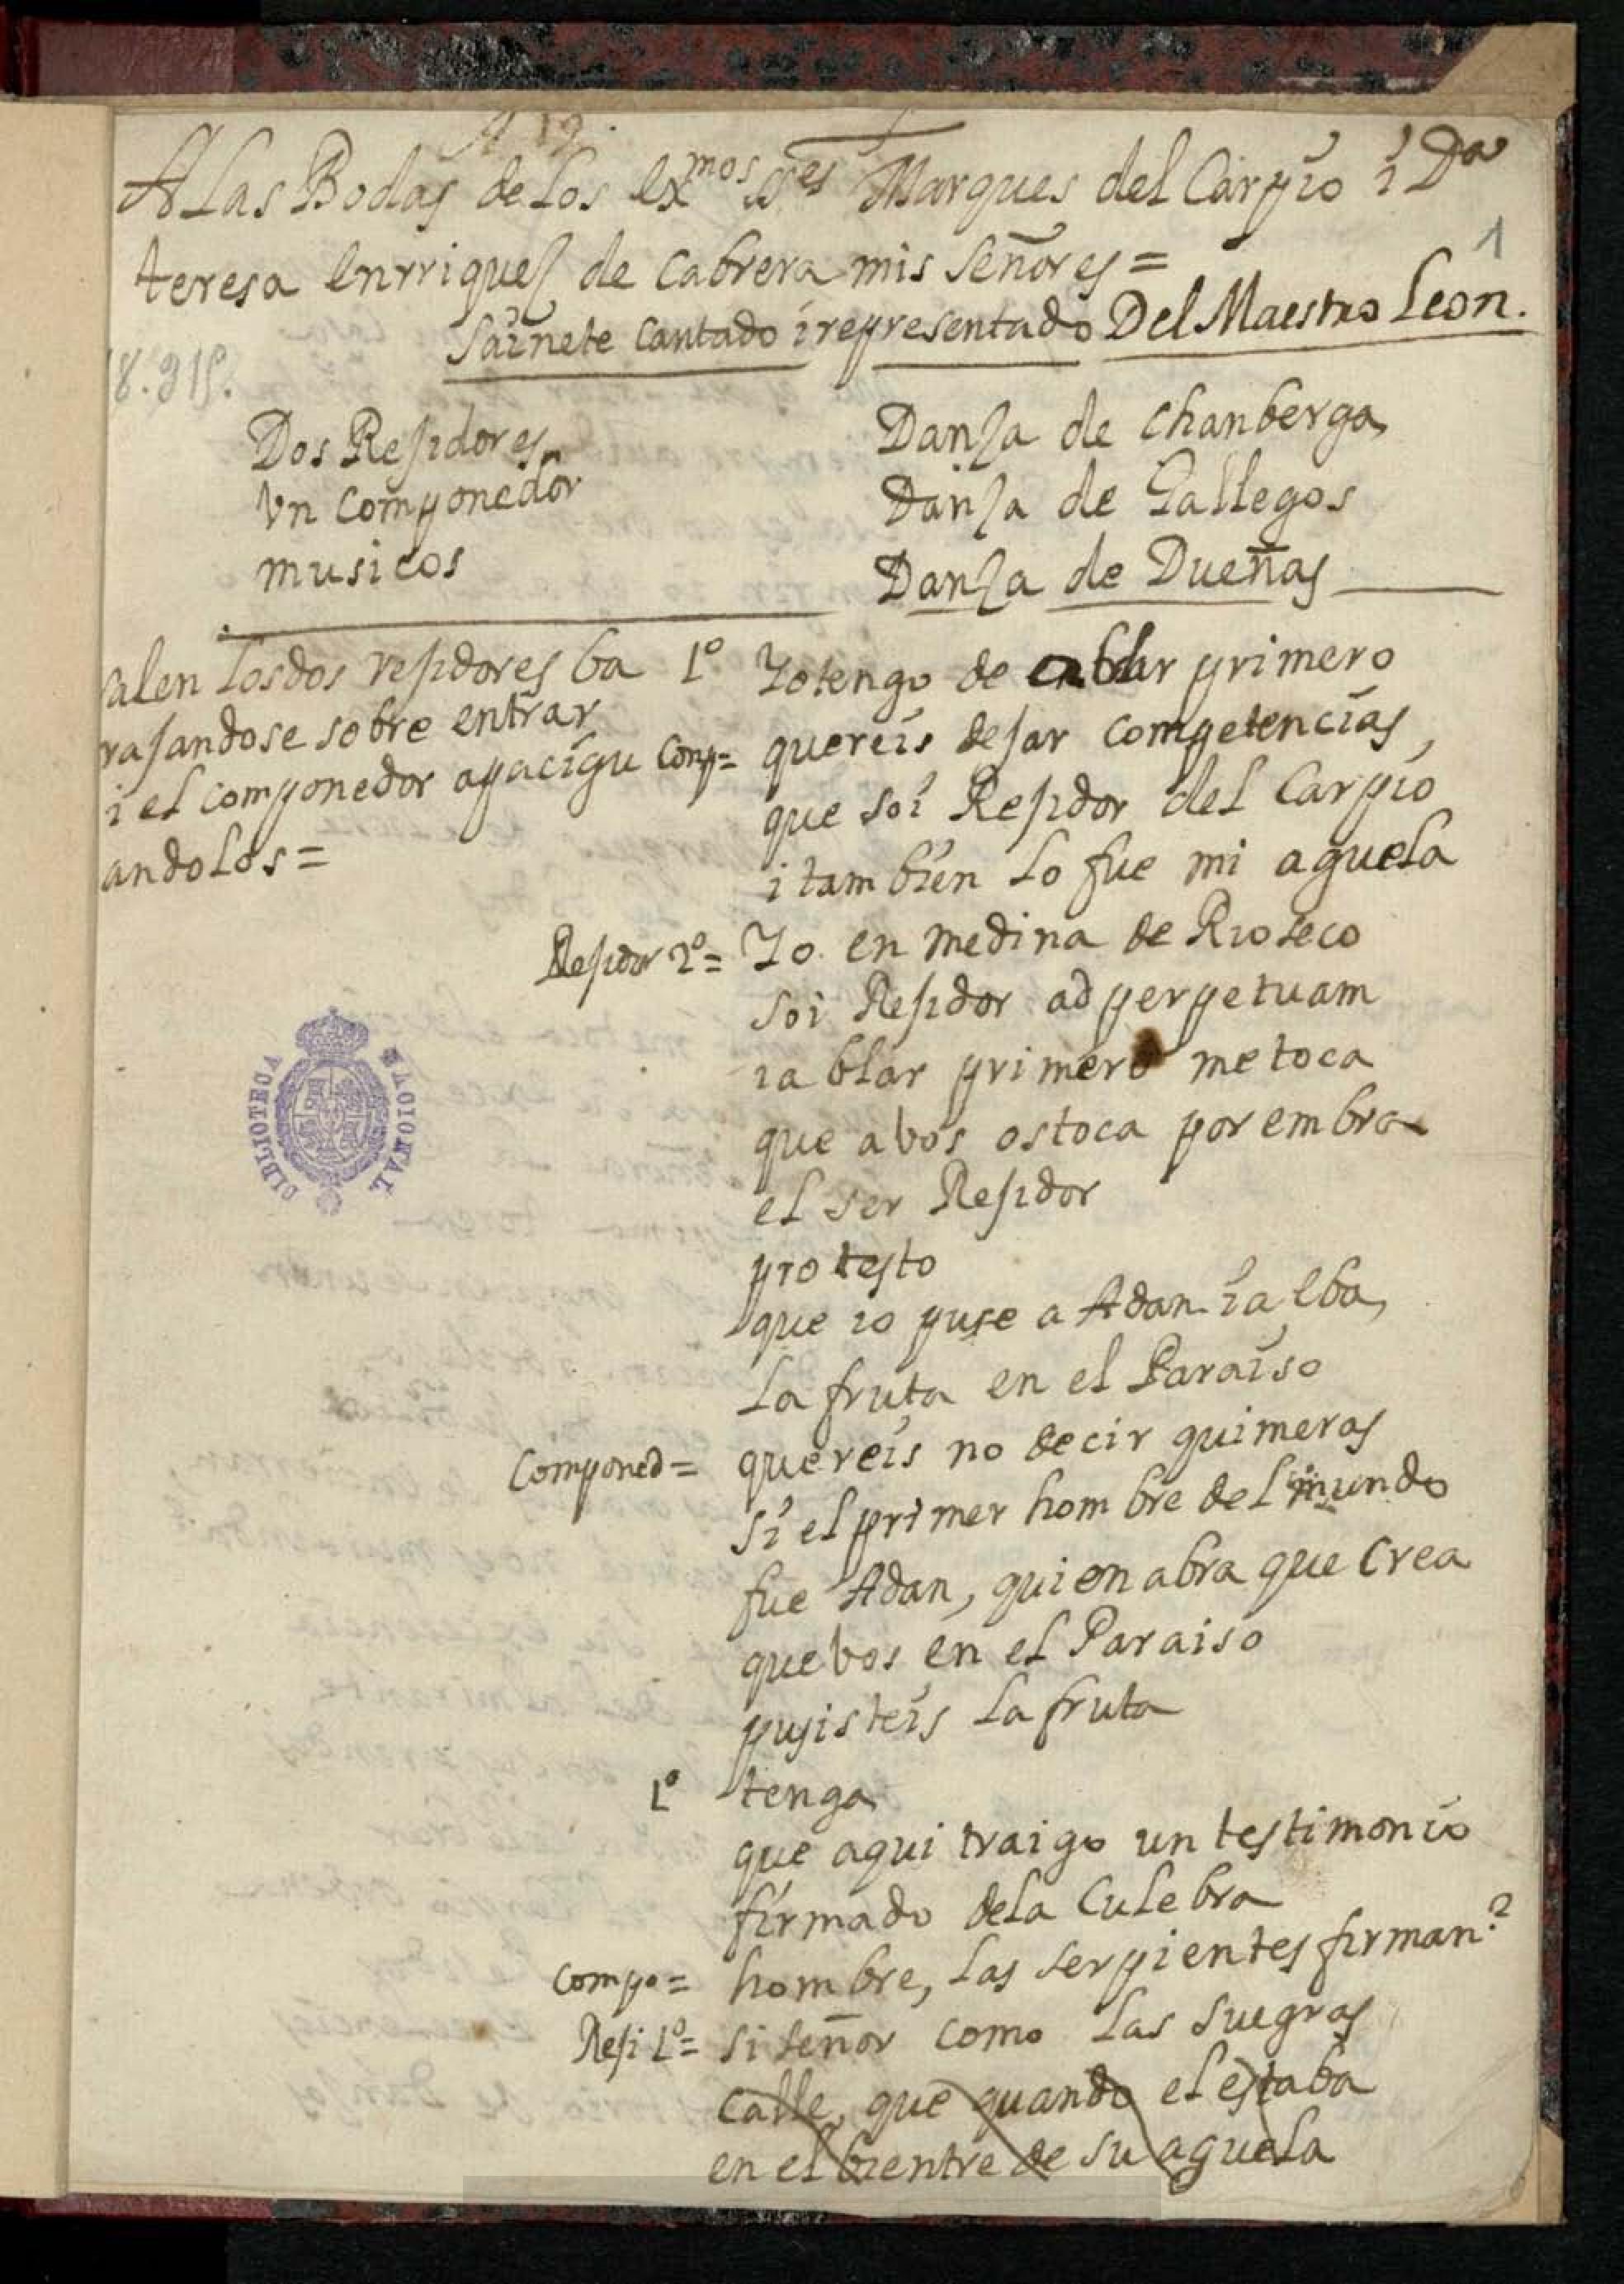 A las Bodas de los exmos Sres Marques del Carpio i Da
teresa enrriquez de Cabrera mis señores =
Sainete cantado i representado Del Maestro Leon.
1
18.315.
Dos Rejidores
Vn componedor
musicos
Danza de chanberga
Danza de Gallegos
Danza de Dueñas
salen los dos rejidores ba
rajandose sobre entrar
i el componedor apacigu
andolos =
1º Yo tengo de ablar primero
Comp= quereis dejar competencias,
que soi Rejidor del Carpio
i tambien lo fue mi aguela
Rejidor 2º= Yo en medina de Rioseco
soi Rejidor ad perpetuam
i ablar primero me toca
que a vos os toca por embra
el ser Rejidor
protesto
que io puse a Adan i a eba,
la fruta en el Paraiso
Componed= quereis no decir quimeras
si el primer hombre del mundo
fue Adan, quien abra que crea
que vos en el Paraiso
pusisteis la fruta
1º tenga
que aqui traigo un testimonio
firmado de la Culebra
Compo= hombre, las serpientes firman?
Reji 1º= si señor como las suegras
calle, que quando el estaba
en el bientre de su aguela
BIBLIOTECA NACIONAL